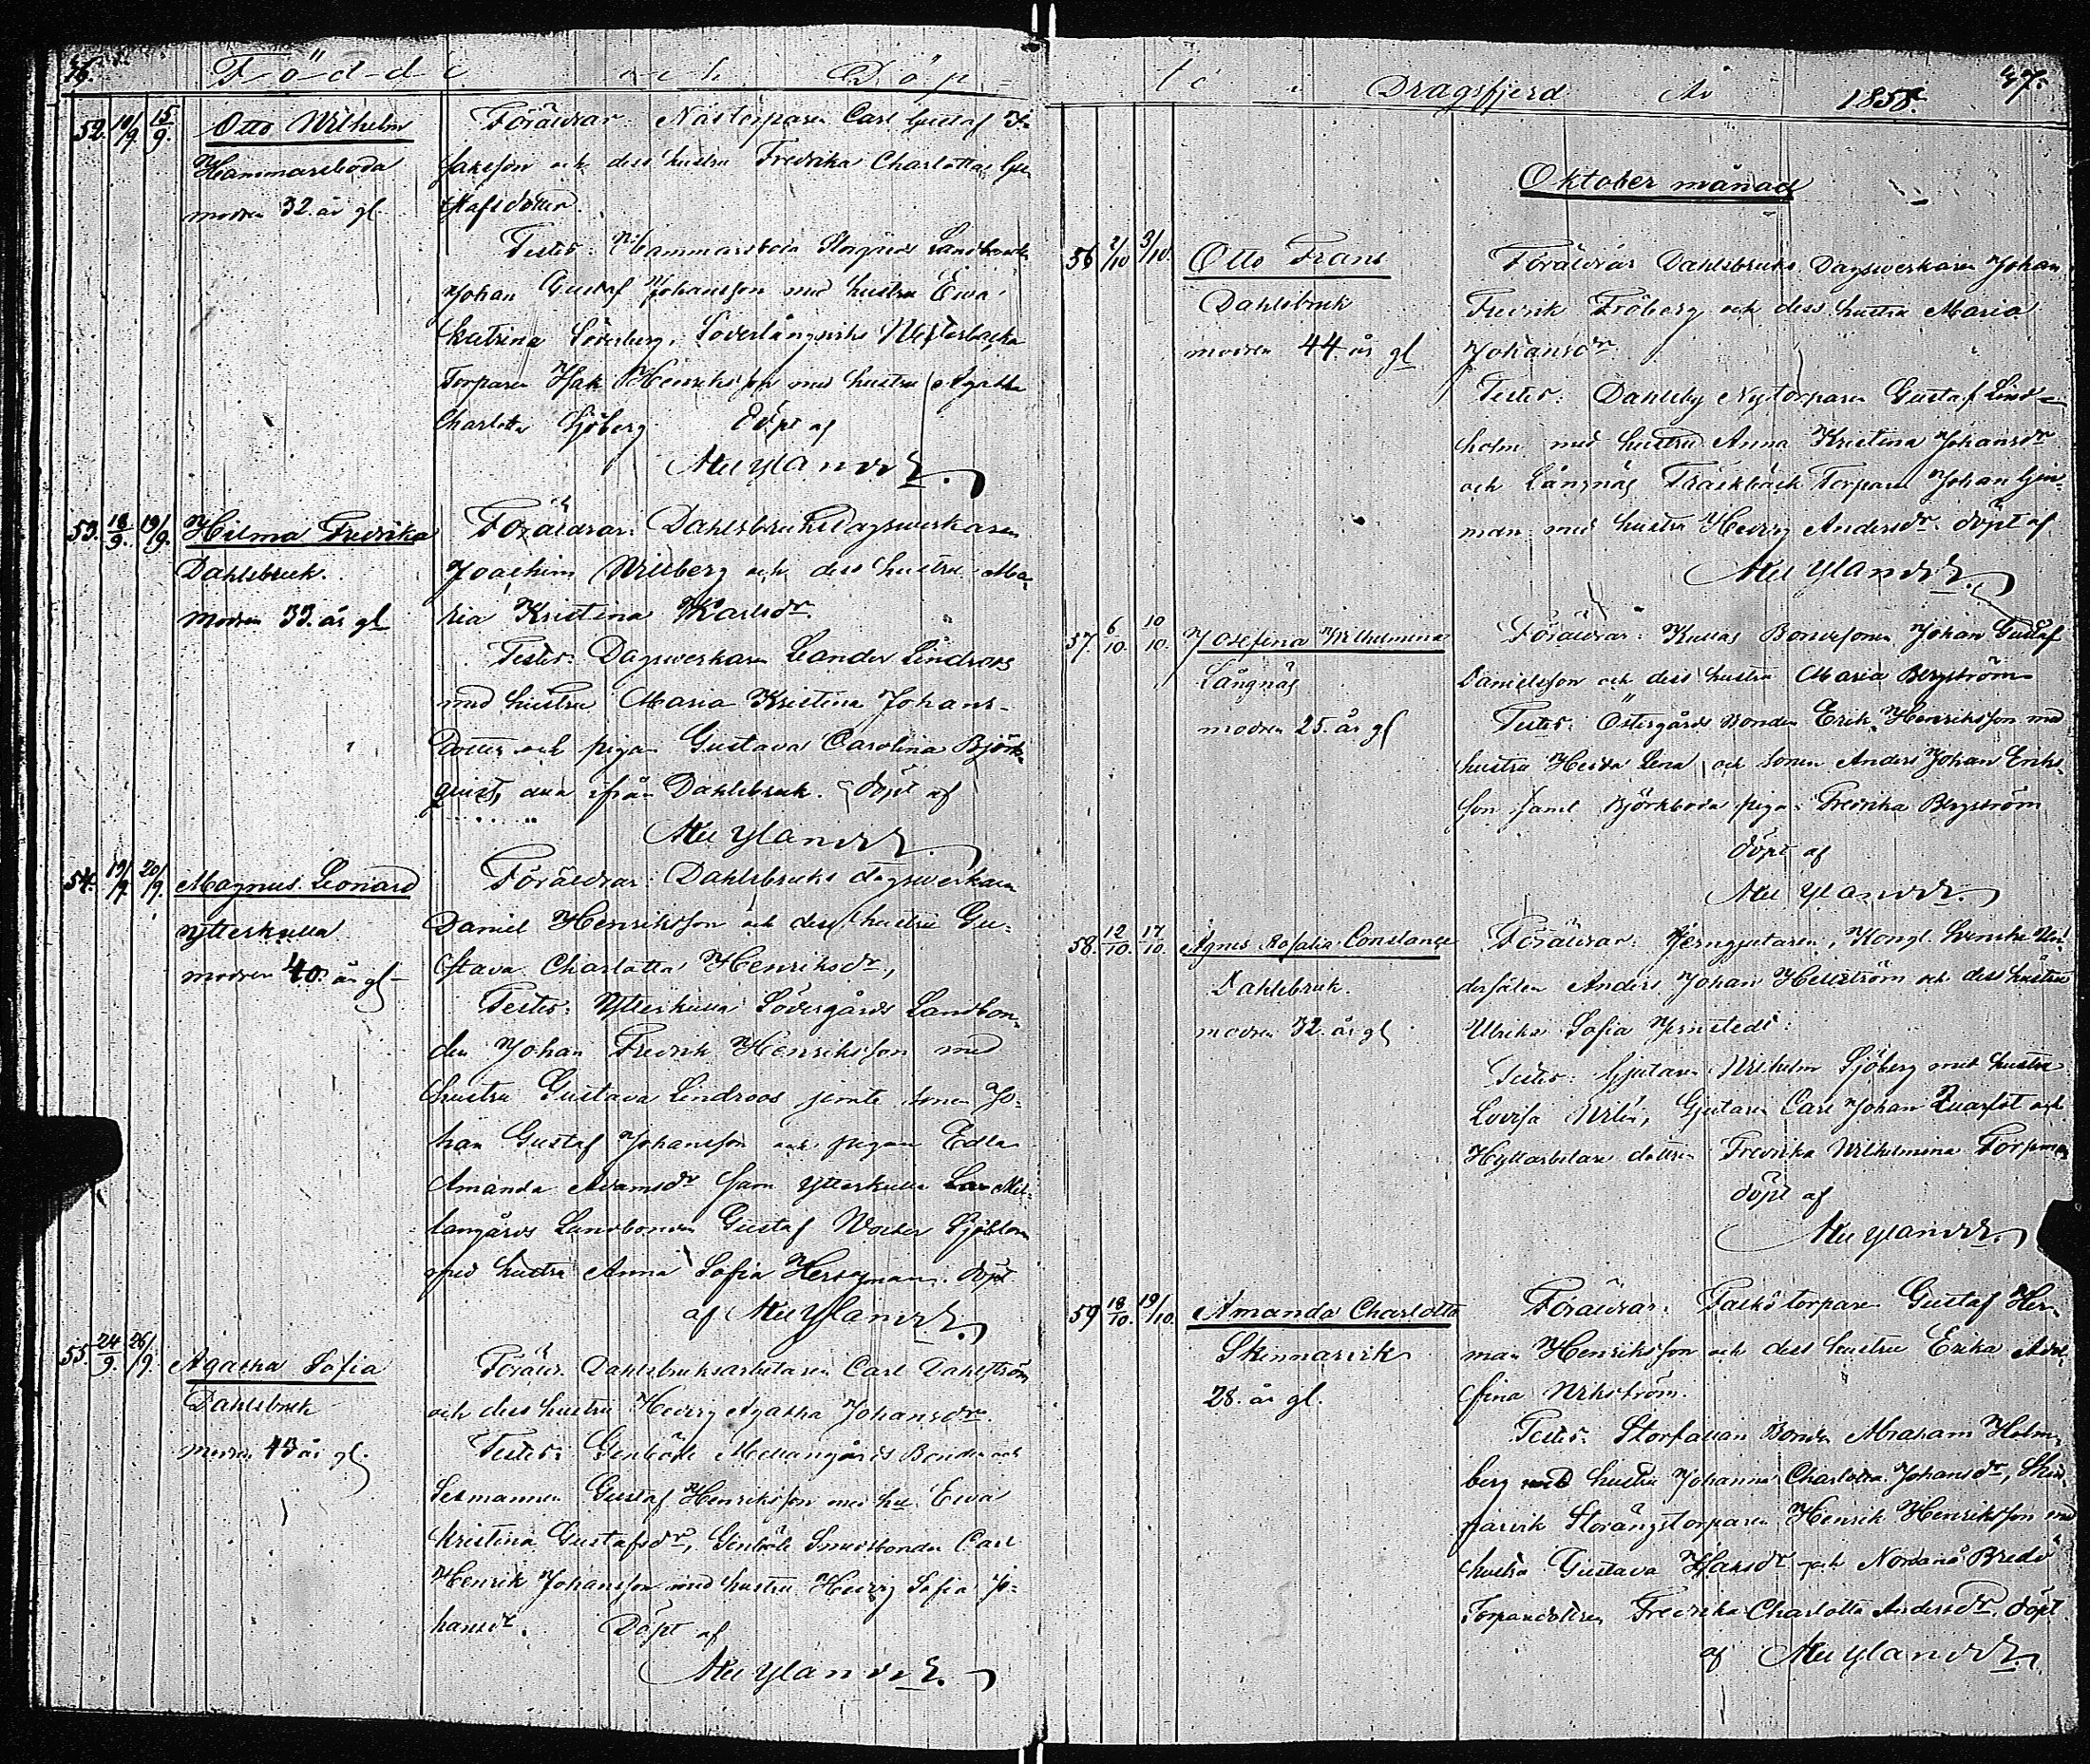 Födde och Döp-
52. 10/9. 15/9. Otto Wilhelm
Hammarsboda
modren 32. år gl
Föräldrar: Carl Gustaf I-
saksson och dess hustru Fredrika Charlotta Gu
stafsdotter.
Testes: Hammarsboda Storgårds Landbonde
Johan Gustaf Johansson med hustru Ewa
Katrina Söderberg, Söderlångviks Westerbacka
Torparen Isak Henriksson med hustru Agatha
Charlotta Sjöberg Döpt af
53. 18/9. 19/9. Hilma Fredrika
Dahlsbruk.
modren 33. år gl
Föräldrar: Dahlsbruks Dagswerkaren
Joachim Wiliberg och dess hustru Ma-
ria Kristina Karlsdr.
Testes: Dagswerkaren Leander Lindroos
med hustru Maria Kristina Johans-
dotter och pigan Gustava Carolina Björk-
quist, alla ifrån Dahlsbruk. Döpt af
54. 19/9. 20/9. Magnus Leonard
Ytterkulla
modren 40. år gl
Föräldrar: Dahlsbruks dagswerkaren
Daniel Henriksson och dess hustru Gu-
stava Charlotta Henriksdr,
Testes: Ytterkulla Södergårds Landbon-
den Johan Fredrik Henriksson med
hustru Gustava Lindroos jemte sonen Jo-
han Gustaf Johansson och pigan Edla
Amanda Adamsdr samt Ytterkulla Mel-
langårds Landbonden Gustaf Sjöblom
med hustru Anna Sofia döpt
af
55. 24/9. 26/9. Agatha Sofia
Dahlsbruk
modren 43 år gl.
Föräldr. Dahlsbruksarbetaren Carl Dahlström
och dess hustru Hedvig Agatha Johansdr.
Testes: Genböle Mellangårds Bonden och
Sexmannen Gustaf Henriksson med hu. Ewa
Kristina Gustafsdr, Genböle Smedsbonden Carl
Henrik Johansson med hustru Hedvig Sofia Jo-
hansdr. Döpt af
te i Dragsfjerd År 1858. 47.
Oktober månad
56 2/10 3/10. Otto Frans
Dahlsbruk
modren 44. år gl
Föräldrar Dahlsbruks Dagswerkaren Johan
Fredrik Fröberg och dess hustru Maria
Johansdr.
Testes: Dahlsby Nytorparen Gustaf Lind-
holm med hustru Anna Kristina Johansdr
och Långnäs Träskbäck Torparen Johan
man med hustru Hedvig Andersdr. döpt af
57. 6/10. 10/10. Josefina Wilhelmina
Långnäs
modren 25. år gl
Föräldrar: Kullas Bondesonen Johan Gustaf
Danielsson och dess hustru Maria Bergström
Testes: Östergårds Bonden Erik Henriksson med
hustru Hedda Lena och sonen Anders Johan Eriks-
son samt Björkboda pigan Fredrika Bergström
döpt af
58. 12/10. 17/10. Agnes Rosalia Constance
Dahlsbruk.
modren 32. år gl
Föräldrar: Jerngjutaren, Kongl. Svenska Un-
dersåten Anders Johan Hellström och dess hustru
Ulrika Sofia Jernstedt.
Testes: Gjutaren Wilhelm Sjöberg med hustru
Lovisa Gjutaren Carl Johan och
Hyttarbetare dottren Fredrika Wilhelmina
döpt af
59 18/10. 19/10. Amanda Charlotta
Skinnarvik
28. år gl.
Föräldrar: Falkö torparen Gustaf Her-
man Henriksson och dess hustru Erika Adol-
fina Wikström.
Testes: Bonden Abraham Holm-
berg med hustru Johanna Charlotta Johansdr, Skin-
narvik Storängstorparen Henrik Henriksson med
hustru Gustava Isaksdr och Nordanå Bredö
Torparedottren Fredrika Charlotta Andersdr. döpt
af